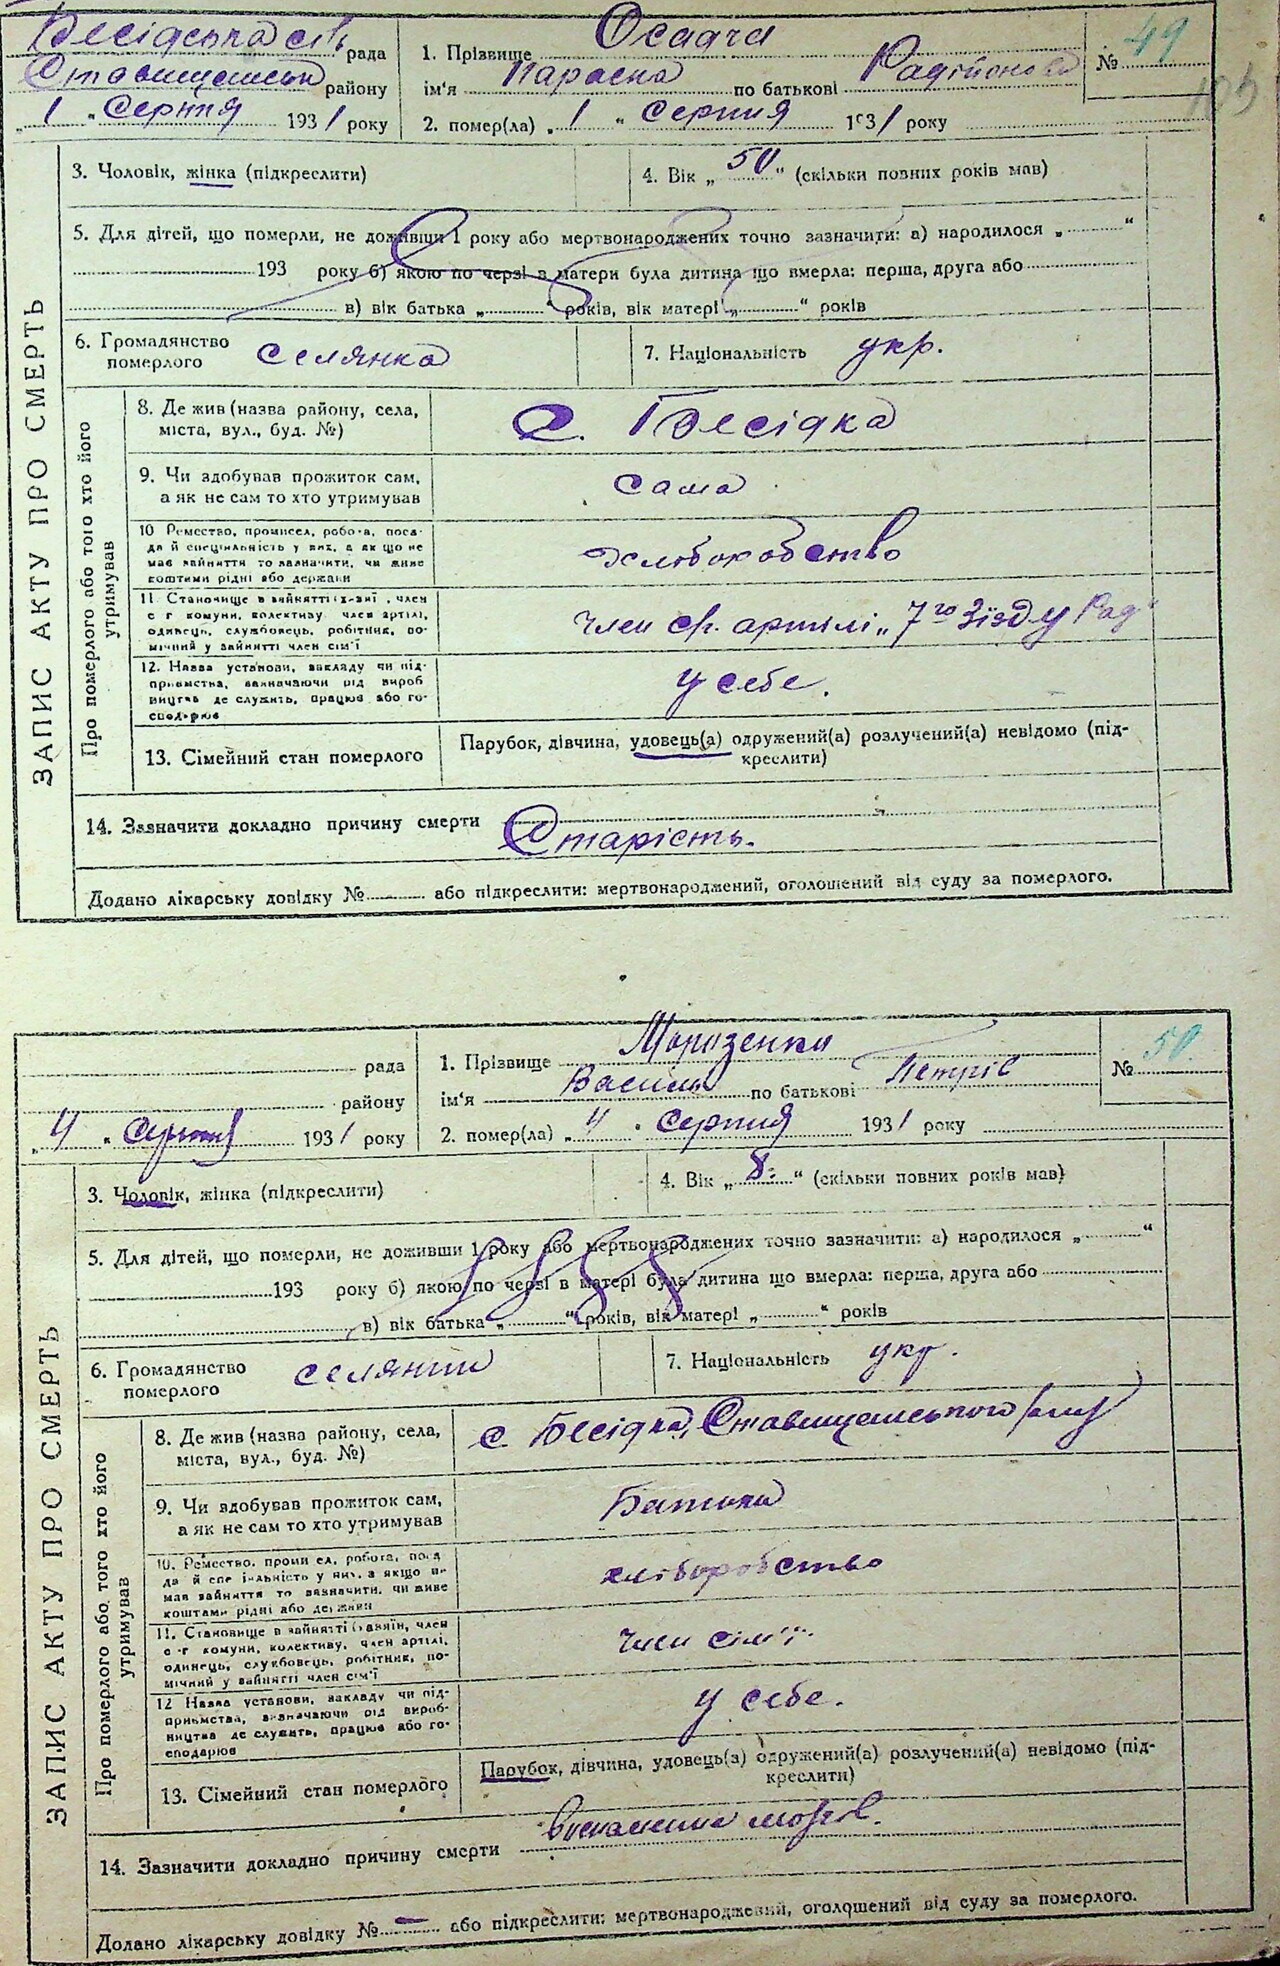 Бесідська сіль рада
Ставищенськ району
„ 1 „ Серпня 1931 року
1. Прізвище Осадча
ім'я Параска по батькові Радійонова
2. помер(ла) „ 1 “ Серпня 1931 року
№ 49
105
ЗАПИС АКТУ ПРО СМЕРТЬ
3. Чоловік, жінка (підкреслити)
4. Вік „ 50 “ (скільки повних років мав)
5. Для дітей, що померли, не доживши 1 року або мертвонароджених точно зазначити: а) народилося „ “
193 року б) якою по черзі в матери була дитина що вмерла: перша, друга або
в) вік батька „ “ років, вік матері „ “ років
6. Громадянство
померлого
селянка
7. Національність укр.
Про померлого або того хто його
утримував
8. Де жив (назва району, села,
міста, вул., буд. №)
с. Бесідка
9. Чи здобував прожиток сам,
а як не сам то хто утримував
сама
10 Ремество, промисел, робота, поса-
да й спеціяльність у них, а як що не
мав зайняття то зазначити, чи живе
коштами рідні або держави
хліборобство
11. Становище в зайнятті , член
с г комуни, колективу, член артілі,
одинець, службовець, робітник, по-
мічний у зайнятті член сім'ї
Член ср. артілі „7го Зїзду Рад“
12. Назва установи, закладу чи під-
приємства, зазначаючи рід вироб
ництва де служить, працює або го-
сподарює
у себе.
13. Сімейний стан померлого
Парубок, дівчина, удовець(а) одружений(а) розлучений(а) невідомо (під-
креслити)
14. Зазначити докладно причину смерти
Старість.
Додано лікарську довідку № або підкреслити: мертвонароджений, оголошений від суду за померлого.
рада
району
„ 4 „ Серпня 1931 року
1. Прізвище Морозенко
ім'я Василь по батькові Петрів
2. помер(ла) „ 4 „ Серпня 1931 року
№ 50
ЗАПИС АКТУ ПРО СМЕРТЬ
3. Чоловік, жінка (підкреслити)
4. Вік „ 8 “ (скільки повних років мав)
5. Для дітей, що померли, не доживши 1 року або мертвонароджених точно зазначити: а) народилося „ “
193 року б) якою по черзі в матері була дитина що вмерла: перша, друга або
в) вік батька „ “ років, вік матері „ “ років
6. Громадянство
померлого
селянин
7. Національність укр.
Про померлого або того хто його
утримував
8. Де жив (назва району, села,
міста, вул., буд. №)
с. Бесідка, Ставищенського
9. Чи здобував прожиток сам,
а як не сам то хто утримував
Батько
10. Ремество, проми ел, робота, поса
да й спе іяльність у них, а якщо не
мав зайняття то зазначити, чи живе
коштами рідні або держави
хліборобство
11. Становище в зайнятті , член
с-г комуни, колективу, член артілі,
одинець, службовець, робітник, по-
мічний у зайнятті член сім'ї
Член сім'ї
12 Назва установи, закладу чи під-
приємства, зазначаючи рід вироб-
ництва де служить, працює або го-
сподарює
у себе.
13. Сімейний стан померлого
Парубок, дівчина, удовець(а) одружений(а) розлучений(а) невідомо (під-
креслити)
14. Зазначити докладно причину смерти
Додано лікарську довідку № – або підкреслити: мертвонароджений, оголошений від суду за померлого.